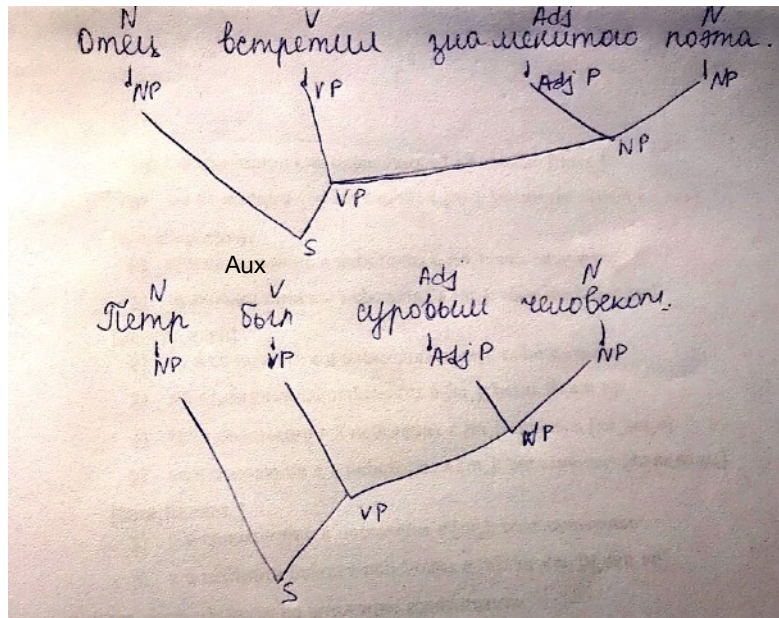 N V Adj N
Отец встретил знаменитого поэта.
NP VP Adj P NP
NP
VP
S
Aux
N V Adj N
Петр был суровым человеком.
NP VP Adj P NP
NP
VP
S